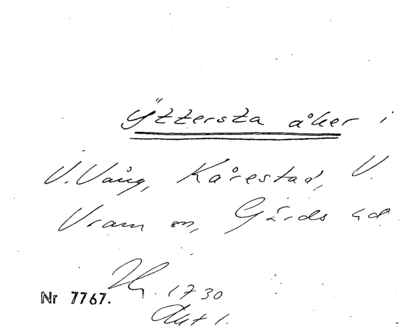 Yttersta åker i
V. Vång, Kårestad, V.
Vram sn, Gärds hd
Nr 7767.
1730
Akt 1.